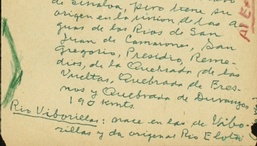 de Sinaloa, pero tiene su
origen en la unión de las a-
guas de los Ríos de San
Juan de Camarones, San
Gregorio, Presidio, Reme-
dios, de la Quebrada de las
Vueltas, Quebrada de Fres-
nos y Quebrada de Durango,
190 kmts.
Río Viborillas: nace en las de Vibo-
rillas y da origen al Río Elota